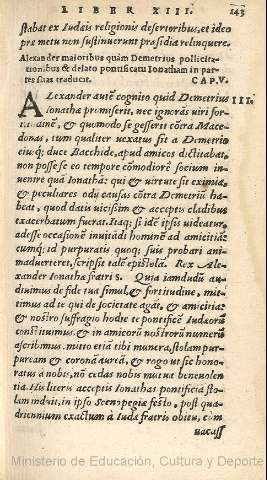 LIBER XIII. 143
stabat ex Iudais religionis desertoribus, et ideo
præ metu non sustinuerunt præsidia relinquere.
Alexander maioribus quàm Demetrius pollicita-
tionibus & delato pontificatu Ionatham in par-
tes suas traducit. CAP. V.
ALexander autē cognito quid Demetrius III.
Ionathæ promiserit, nec ignorās uiri for-
titudinē, & quomodo se gesserit cōtra Mace-
donas, tum qualiter uexatus sit a Demetrio
eiusq́; duce Bacchide, apud amicos dictitabat,
non posse se eo tempore cōmodiorē socium in-
uenire quā Ionathā: qui & uirtute sit eximia,
& peculiares odij causas cōtra Demetriū ha-
beat, quod datis uicissim & acceptis cladibus
exacerbatum fuerat. Itaq; si idē ipsis uideatur,
adesse occasionē inuitādi hominē ad amicitiā
cumq́; id purpuratis quoq; suis probari ani-
maduerteret, scripsit talē epistolā. Rex Ale-
xander Ionathæ fratri S. Quia iamdudū au-
diuimus de fide tua simul, & fortitudine, mit-
timus ad te qui de societate agāt, & amicitia:
& nostro suffragio hodie te pontificē Iudæorū
constituimus, & in amicorū nostrorū numerū
ascribimus. mitto etiā tibi munera, stolam pur-
puream & coronā aureā, & rogo ut sic hono-
ratus a nobis, nō cedas nobis mutua beneuolen
tia. His literis acceptis Ionathas pontificia sto-
lam induit, in ipso Scenopegiæ festo, post qua-
driennium exactum à Iudæ fratris obitu, cùm
uacass
Ministerio de Educación, Cultura y Deporte